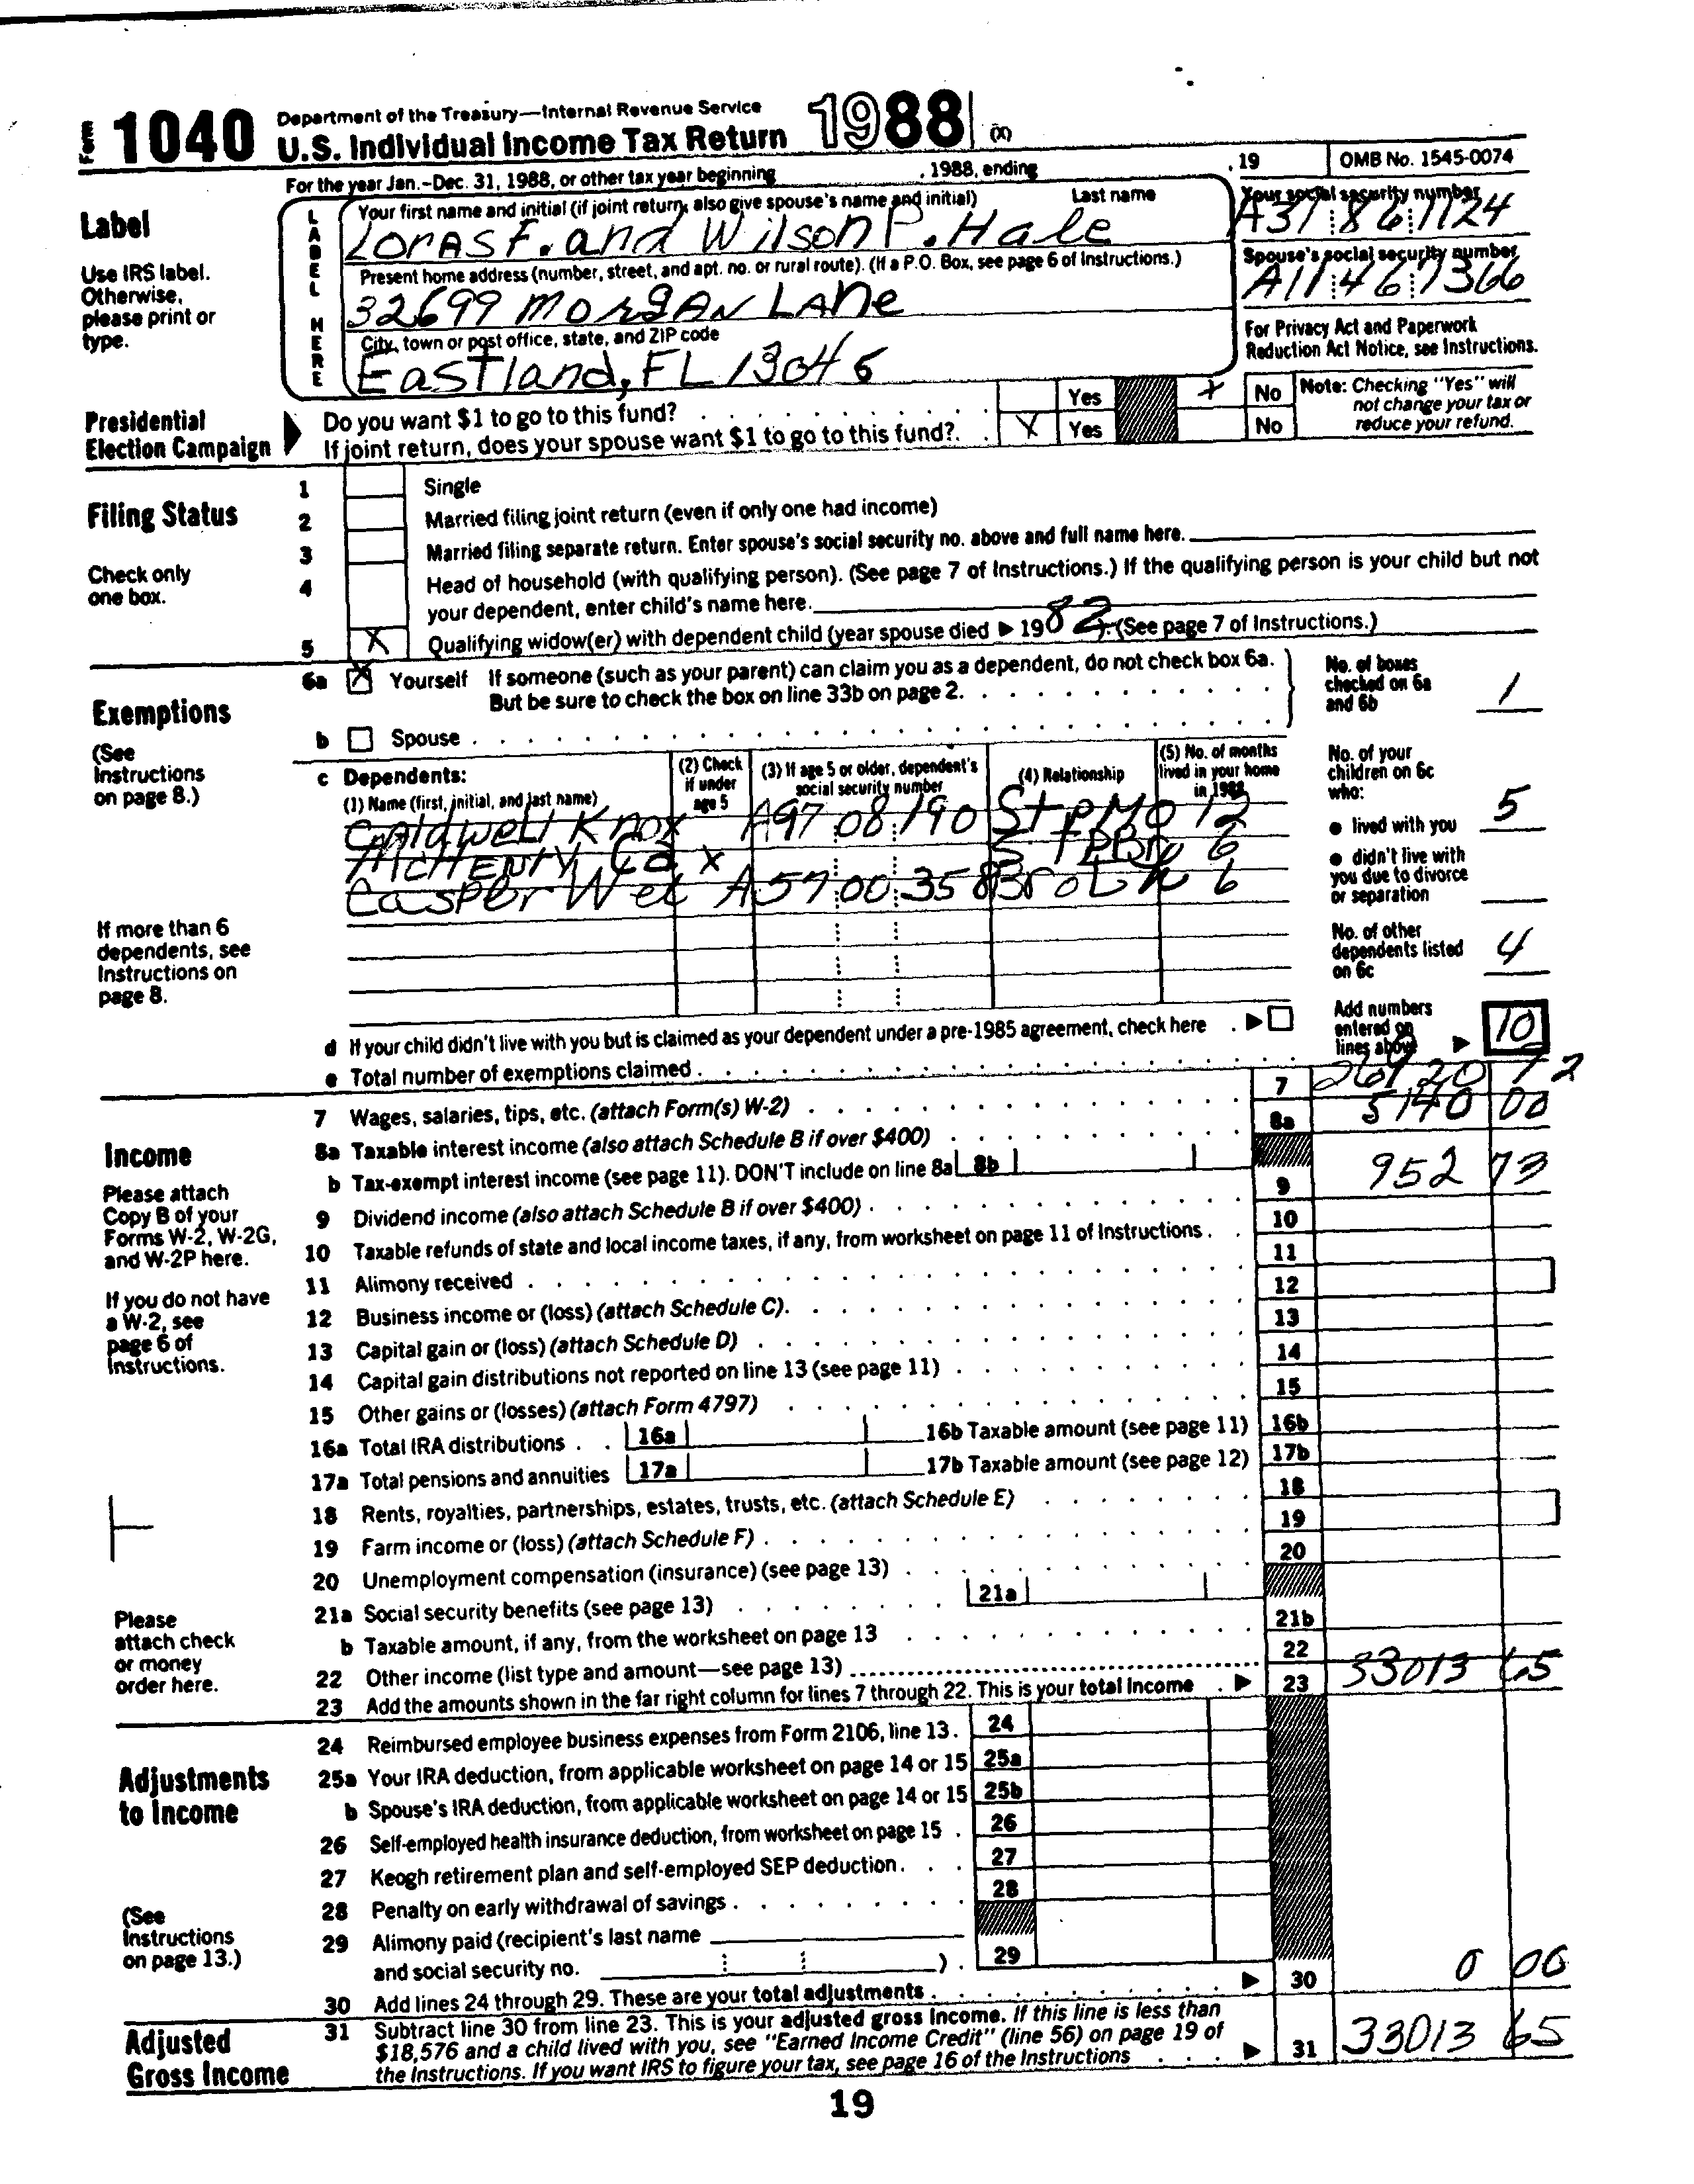 Form 1040 Department of the Treasury—Internal Revenue Service
U.S. Individual Income Tax Return 1988 (X)
For the year Jan.-Dec. 31, 1988, or other tax year beginning , 1988, ending , 19 OMB No. 1545-0074
Label
Use IRS label.
Otherwise,
please print or
type.
LABEL HERE
Your first name and initial (if joint return, also give spouse's name and initial) Last name
Loras F. and Wilson P. Hale
Your social security number
A31 86 1124
Present home address (number, street, and apt. no. or rural route). (If a P.O. Box, see page 6 of Instructions.)
32699 Morgan Lane
Spouse's social security number
A11 46 7366
City, town or post office, state, and ZIP code
Eastland, FL 13045
For Privacy Act and Paperwork
Reduction Act Notice, see Instructions.
Presidential
Election Campaign
Do you want $1 to go to this fund? Yes X No
If joint return, does your spouse want $1 to go to this fund? X Yes No
Note: Checking "Yes" will
not change your tax or
reduce your refund.
Filing Status
Check only
one box.
1 Single
2 Married filing joint return (even if only one had income)
3 Married filing separate return. Enter spouse's social security no. above and full name here.
4 Head of household (with qualifying person). (See page 7 of Instructions.) If the qualifying person is your child but not
your dependent, enter child's name here.
5 X Qualifying widow(er) with dependent child (year spouse died ▶ 19 82 ). (See page 7 of Instructions.)
Exemptions
(See
Instructions
on page 8.)
6a X Yourself If someone (such as your parent) can claim you as a dependent, do not check box 6a.
But be sure to check the box on line 33b on page 2.
b Spouse
No. of boxes
checked on 6a
and 6b 1
c Dependents:
(1) Name (first, initial, and last name)
(2) Check
if under
age 5
(3) If age 5 or older, dependent's
social security number
(4) Relationship
(5) No. of months
lived in your home
in 1988
Caldwell Knox A97 08 190 StpMo 12
McHenry Ca X StpBro 6
Casper Wel A57 00 358 6
If more than 6
dependents, see
Instructions on
page 8.
No. of your
children on 6c
who:
● lived with you 5
● didn't live with
you due to divorce
or separation
No. of other
dependents listed
on 6c 4
d If your child didn't live with you but is claimed as your dependent under a pre-1985 agreement, check here ▶
e Total number of exemptions claimed
Add numbers
entered on
lines above ▶ 10
Income
Please attach
Copy B of your
Forms W-2, W-2G,
and W-2P here.
If you do not have
a W-2, see
page 6 of
Instructions.
Please
attach check
or money
order here.
7 Wages, salaries, tips, etc. (attach Form(s) W-2) 7 26920 92
8a Taxable interest income (also attach Schedule B if over $400) 8a 5140 00
b Tax-exempt interest income (see page 11). DON'T include on line 8a 8b
9 Dividend income (also attach Schedule B if over $400) 9 952 73
10 Taxable refunds of state and local income taxes, if any, from worksheet on page 11 of Instructions 10
11 Alimony received 11
12 Business income or (loss) (attach Schedule C) 12
13 Capital gain or (loss) (attach Schedule D) 13
14 Capital gain distributions not reported on line 13 (see page 11) 14
15 Other gains or (losses) (attach Form 4797) 15
16a Total IRA distributions 16a 16b Taxable amount (see page 11) 16b
17a Total pensions and annuities 17a 17b Taxable amount (see page 12) 17b
18 Rents, royalties, partnerships, estates, trusts, etc. (attach Schedule E) 18
19 Farm income or (loss) (attach Schedule F) 19
20 Unemployment compensation (insurance) (see page 13) 20
21a Social security benefits (see page 13) 21a
b Taxable amount, if any, from the worksheet on page 13 21b
22 Other income (list type and amount—see page 13) 22
23 Add the amounts shown in the far right column for lines 7 through 22. This is your total income ▶ 23 33013 65
Adjustments
to Income
(See
Instructions
on page 13.)
24 Reimbursed employee business expenses from Form 2106, line 13. 24
25a Your IRA deduction, from applicable worksheet on page 14 or 15 25a
b Spouse's IRA deduction, from applicable worksheet on page 14 or 15 25b
26 Self-employed health insurance deduction, from worksheet on page 15 26
27 Keogh retirement plan and self-employed SEP deduction 27
28 Penalty on early withdrawal of savings 28
29 Alimony paid (recipient's last name
and social security no. ) 29
30 Add lines 24 through 29. These are your total adjustments ▶ 30 0 00
Adjusted
Gross Income
31 Subtract line 30 from line 23. This is your adjusted gross income. If this line is less than
$18,576 and a child lived with you, see "Earned Income Credit" (line 56) on page 19 of
the Instructions. If you want IRS to figure your tax, see page 16 of the Instructions ▶ 31 33013 65
19